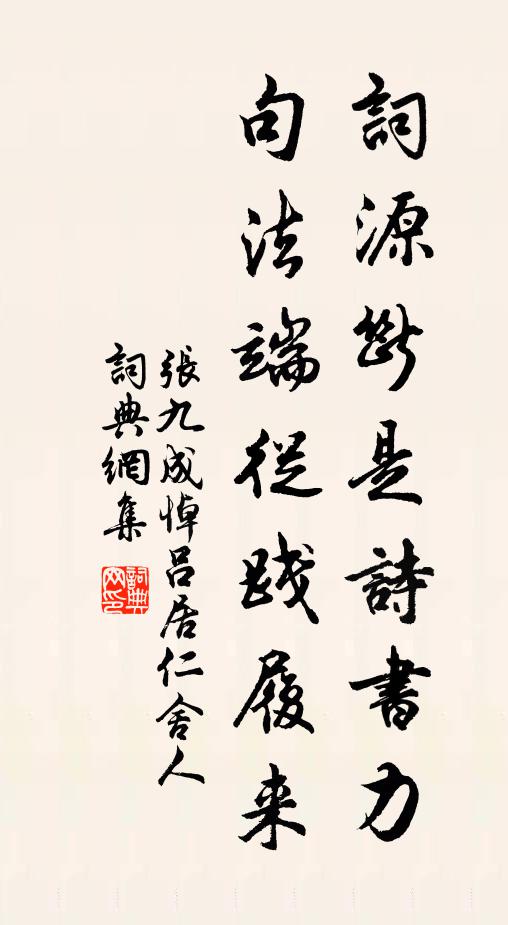 詞源斷是詩書力
句法端從踐履来
張九成悼呂居仁舍人
詞典網集
詞典
网印